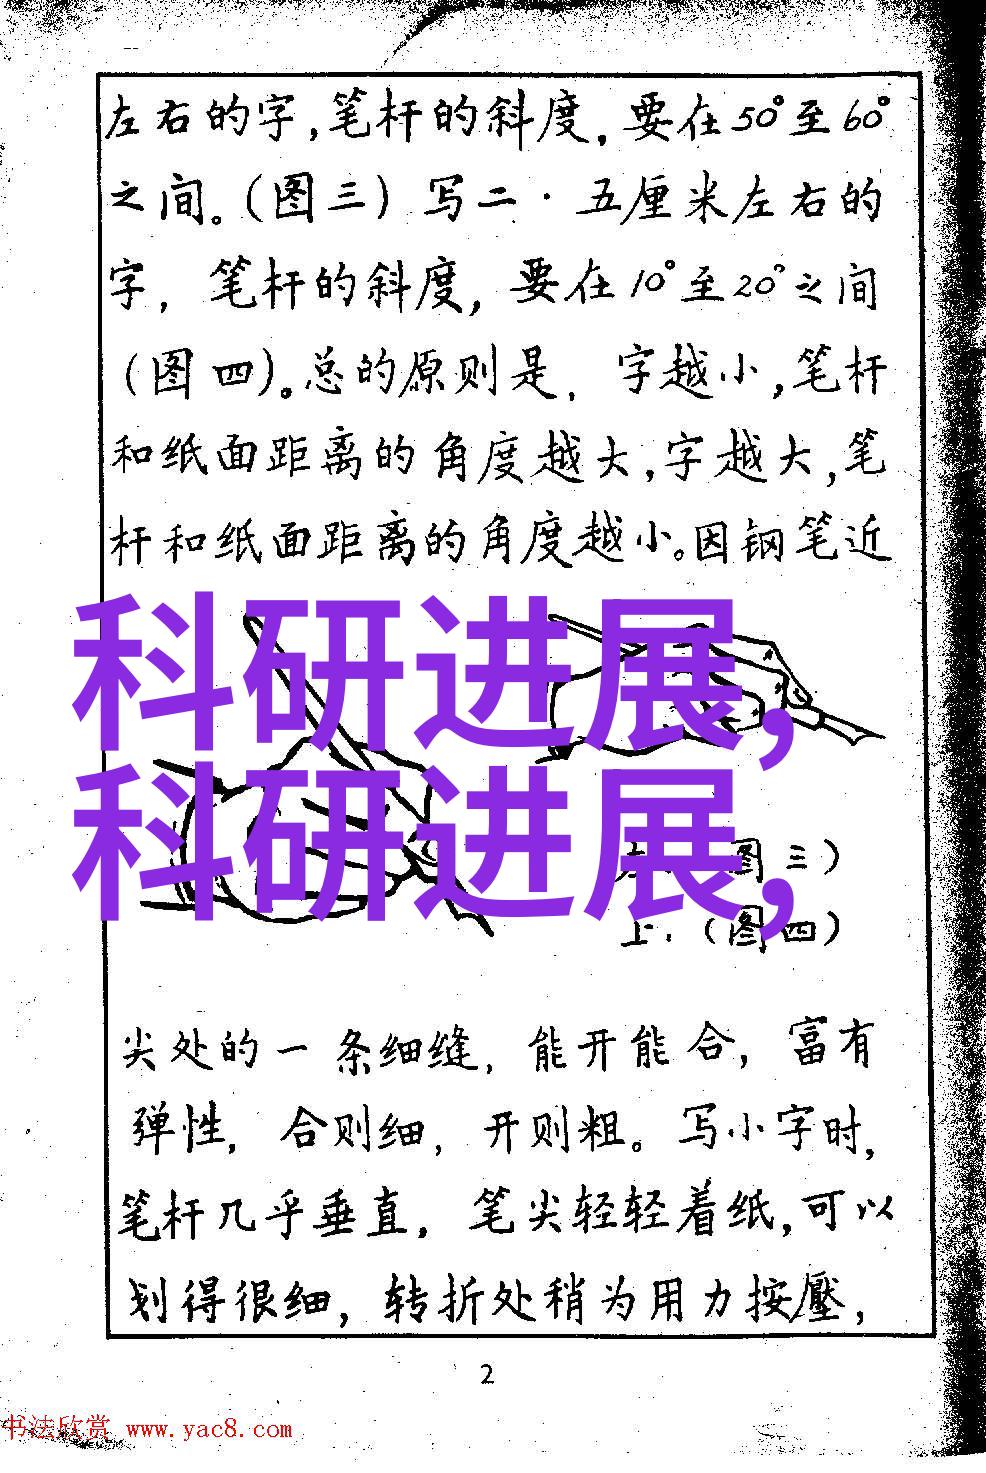 左右的字,笔杆的斜度,要在50°至60°
之间。(图三)写二·五厘米左右的
字,笔杆的斜度,要在10°至20°之间
(图四)。总的原则是,字越小,笔杆
和纸面距离的角度越大,字越大,笔
杆和纸面距离的角度越小。因钢笔近
科研进展,
科研进展,
图三)
上:(图四)
尖处的一条细缝,能开能合,富有
弹性,合则细,开则粗。写小字时,
笔杆几乎垂直,笔尖轻轻着纸,可以
划得很细,转折处稍为用力按壓,
2
书法欣赏 www.yac8.com